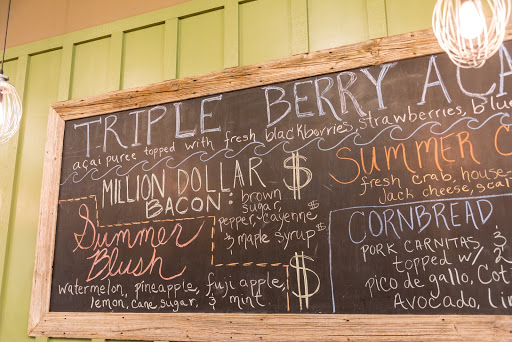 TRIPLE BERRY ACA
açaí puree topped with fresh blackberries, strawberries, blue
MILLION DOLLAR $
BACON: brown
sugar,
pepper, cayenne
& maple syrup $$
Summer
Blush $
watermelon, pineapple, fuji apple,
lemon, cane sugar, & mint
SUMMER C
fresh crab, house-
jack cheese, scal
CORNBREAD
PORK CARNITAS, &
topped w/ 2
pico de gallo, Coti
Avocado, Lim